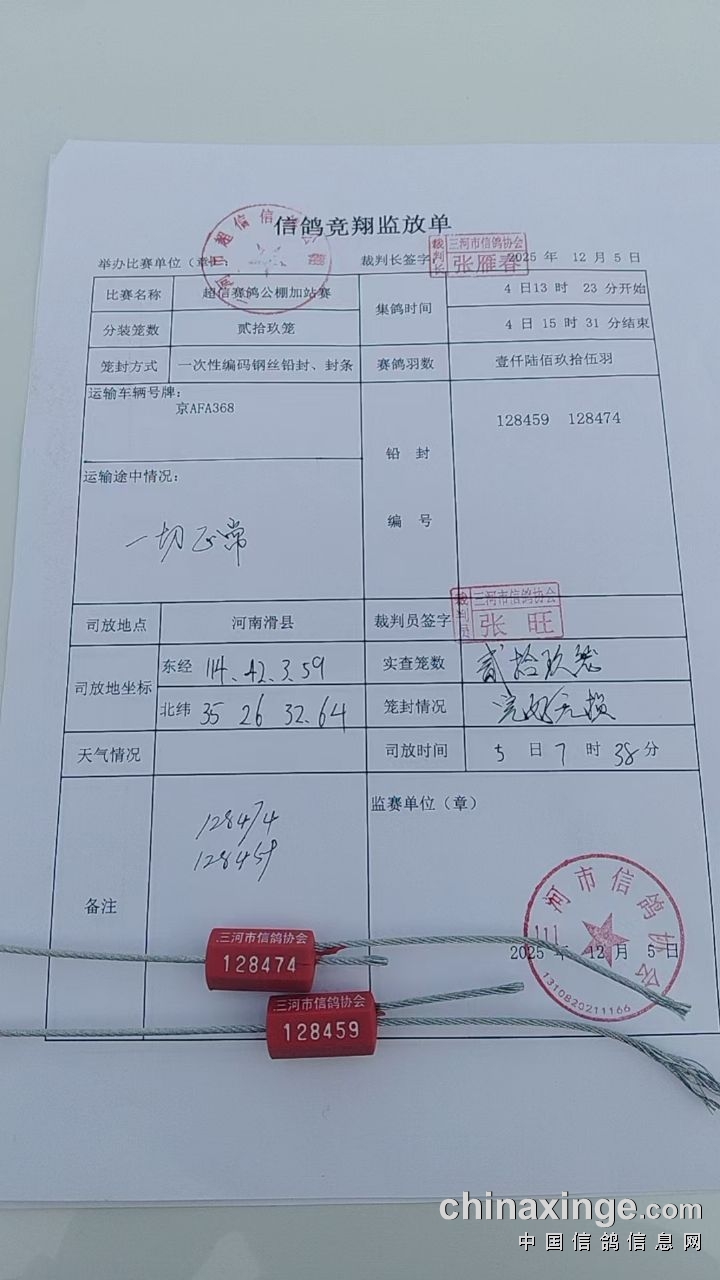 信鸽竞翔监放单
举办比赛单位（章）：
裁判长签字：
裁判长 三河市信鸽协会
张雁春
2025 年 12 月 5 日
比赛名称 超信赛鸽公棚加站赛
集鸽时间 4 日13 时 23 分开始
4 日 15 时 31 分结束
分装笼数 贰拾玖笼
笼封方式 一次性编码钢丝铅封、封条
赛鸽羽数 壹仟陆佰玖拾伍羽
运输车辆号牌：
京AFA368
铅 封
编 号
128459 128474
运输途中情况：
一切正常
司放地点 河南滑县
裁判员签字
裁判员 三河市信鸽协会
张 旺
司放地坐标
东经 114.42.3.59
北纬 35 26 32.64
实查笼数 贰拾玖笼
笼封情况 完好无损
天气情况
司放时间 5 日 7 时 38 分
备注
128474
128459
监赛单位（章）
三河市信鸽协会
2025 年 12 月 5 日
1310820211166
三河市信鸽协会
128474
三河市信鸽协会
128459
chinaxinge.com
中国信鸽信息网